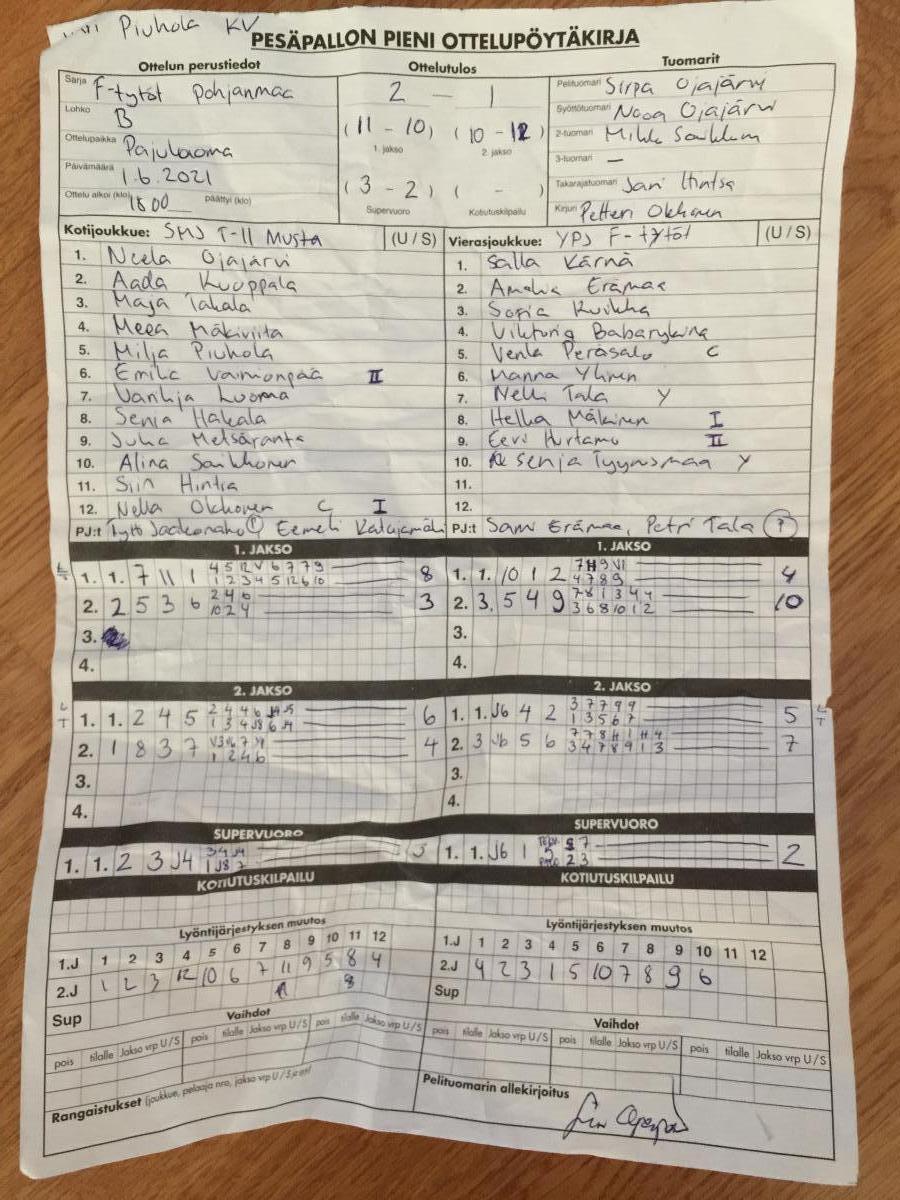 Piuhola KV
PESÄPALLON PIENI OTTELUPÖYTÄKIRJA
Ottelun perustiedot Ottelutulos Tuomarit
Sarja F-tytöt Pohjanmaa
Lohko B
Ottelupaikka Pajuluoma
Päivämäärä 1.6.2021
Ottelu alkoi (klo) 18 00 päättyi (klo)
2 — 1
(11 - 10) (10 - 12)
1. jakso 2. jakso
(3 - 2) ( - )
Supervuoro Kotiutuskilpailu
Pelituomari Sirpa Ojajärvi
Syöttötuomari Noora Ojajärvi
2-tuomari
3-tuomari —
Takarajatuomari Jari Hintsa
Kirjuri Petteri Okkonen
Kotijoukkue: SMJ T-11 Musta (U / S)
1. Neela Ojajärvi
2. Aada Kuoppala
3. Maja Takala
4. Meea Mäkiviita
5. Milja Piuhola
6. Emilia Vainionpää II
7. Vanilja Luoma
8. Senja Hakala
9. Julia Metsäranta
10. Alina Saikkonen
11. Siiri Hintsa
12. Nella Okkonen C I
PJ:t Tytti Jaakonaho Eemeli Katajamäki
Vierasjoukkue: YPJ F-tytöt (U / S)
1. Salla Kärnä
2. Amelia Erämaa
3. Sofia Kuikka
4. Viktoria
5. Venla Peräsalo C
6. Hanna Ylinen
7. Nelli Tala Y
8. Hella Mäkinen I
9. Eevi Hurtamo II
10. Senja Tyynismaa Y
11.
12.
PJ:t Sami Erämaa, Petri Tala ?
1. JAKSO
1. 1. 7 11 1 8
1 2 3 4 5 12 6 10
2. 2 5 3 6 2 4 6 3
10 2 4
3.
4.
1. JAKSO
1. 1. 10 1 2 4
4 7 8 9
2. 3. 5 4 9 7 8 1 3 4 4 10
3 6 8 10 1 2
3.
4.
2. JAKSO
1. 1. 2 4 5 6
2. 1 8 3 7 4
1 2 4 6
3.
4.
2. JAKSO
1. 1. J6 4 2 3 7 7 9 9 5
1 3 5 6 7
2. 3 J6 5 6 7
3 4 7 8 9 1 3
3.
4.
SUPERVUORO
1. 1. 2 3 J4 3 4 J4 3
1 J8 2
SUPERVUORO
1. 1. J6 1 2
2 3
KOTIUTUSKILPAILU
KOTIUTUSKILPAILU
Lyöntijärjestyksen muutos
1.J 1 2 3 4 5 6 7 8 9 10 11 12
2.J 1 2 3 12 10 6 7 11 9 5 8 4
Sup
Lyöntijärjestyksen muutos
1.J 1 2 3 4 5 6 7 8 9 10 11 12
2.J 4 2 3 1 5 10 7 8 9 6
Sup
Vaihdot
pois tilalle Jakso vrp U/S pois tilalle Jakso vrp U/S pois tilalle Jakso vrp U/S
Vaihdot
pois tilalle Jakso vrp U/S pois tilalle Jakso vrp U/S pois tilalle Jakso vrp U/S
Rangaistukset (joukkue, pelaaja nro, jakso vrp U/S ja en)
Pelituomarin allekirjoitus